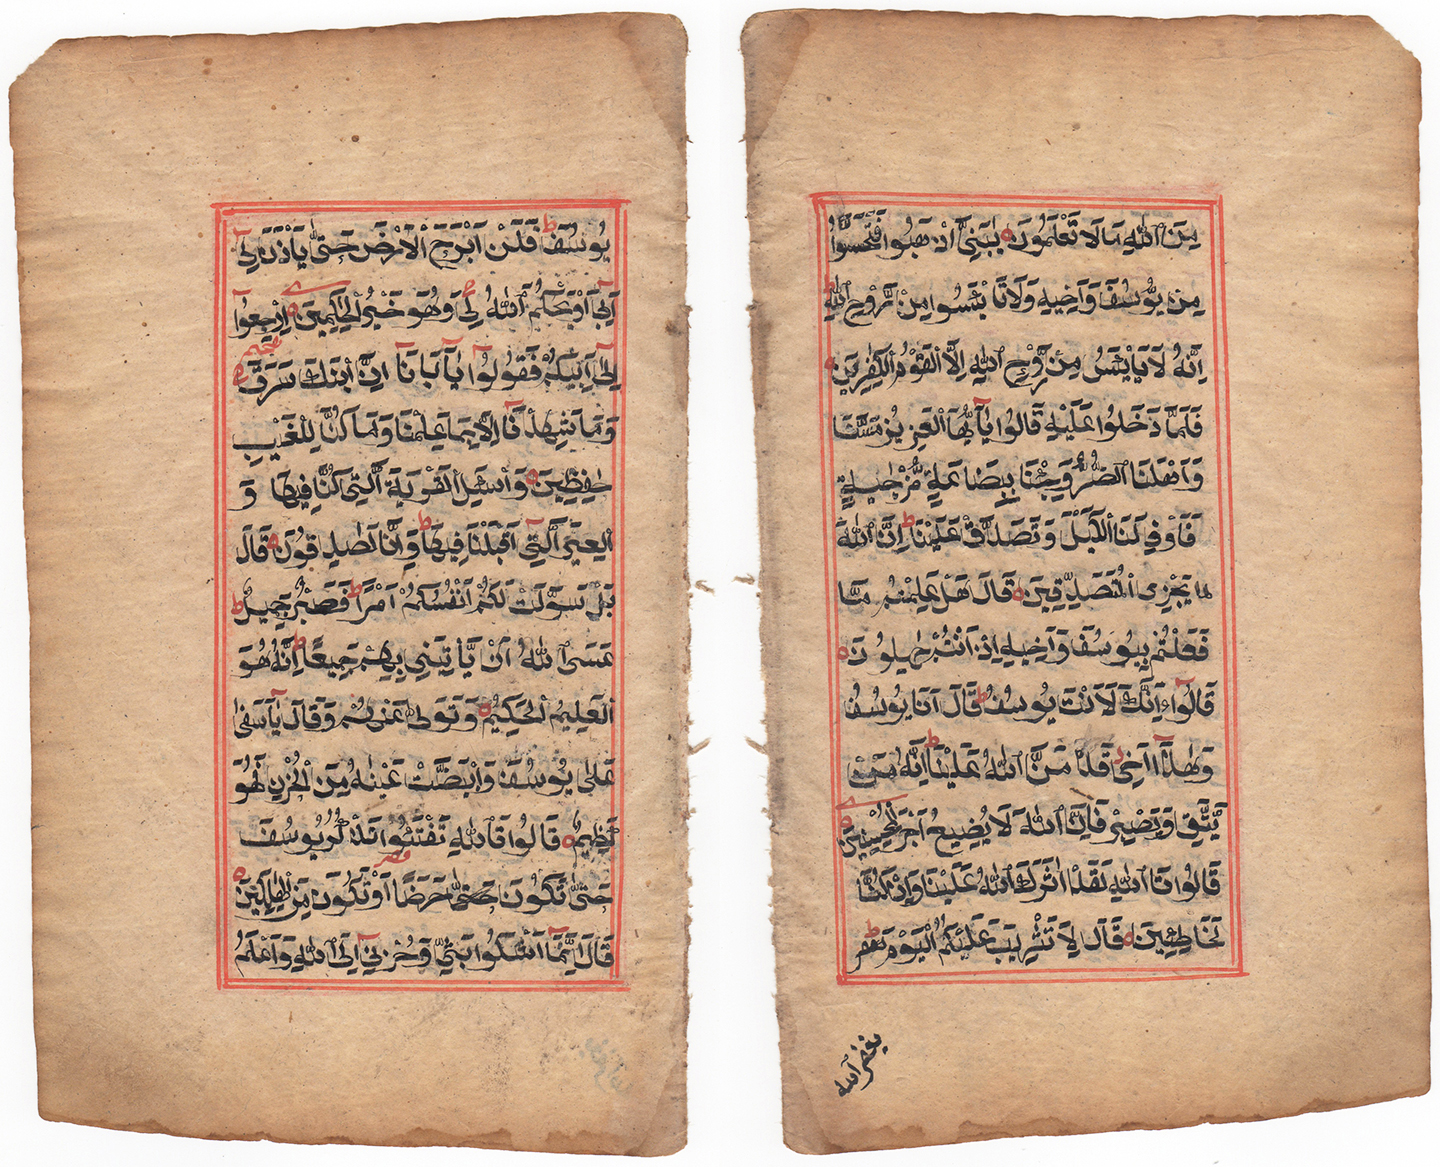 يُوسُفَ فَلَنْ اَبْرَحَ الْاَرْضَ حَتّٰى يَاْذَنَ لِىْ
اَبِىْ اَوْ يَحْكُمَ اللّٰهُ لِىْ وَهُوَ خَيْرُ الْحٰكِمِيْنَ اِرْجِعُوْا
اِلٰى اَبِيْكُمْ فَقُوْلُوْا يٰاَبَانَا اِنَّ ابْنَكَ سَرَقَ
وَمَا شَهِدْنَا اِلَّا بِمَا عَلِمْنَا وَمَا كُنَّا لِلْغَيْبِ
حٰفِظِيْنَ وَاسْئَلِ الْقَرْيَةَ الَّتِىْ كُنَّا فِيْهَا وَ
الْعِيْرَ الَّتِىْ اَقْبَلْنَا فِيْهَا وَاِنَّا لَصٰدِقُوْنَ قَالَ
بَلْ سَوَّلَتْ لَكُمْ اَنْفُسُكُمْ اَمْرًا فَصَبْرٌ جَمِيْلٌ
عَسَى اللّٰهُ اَنْ يَّاْتِيَنِىْ بِهِمْ جَمِيْعًا اِنَّهُ هُوَ
الْعَلِيْمُ الْحَكِيْمُ وَتَوَلّٰى عَنْهُمْ وَقَالَ يٰاَسَفٰى
عَلٰى يُوْسُفَ وَابْيَضَّتْ عَيْنٰهُ مِنَ الْحُزْنِ فَهُوَ
كَظِيْمٌ قَالُوْا تَاللّٰهِ تَفْتَئُوْا تَذْكُرُ يُوْسُفَ
حَتّٰى تَكُوْنَ حَرَضًا اَوْ تَكُوْنَ مِنَ الْهٰلِكِيْنَ
قَالَ اِنَّمَا اَشْكُوْا بَثِّىْ وَحُزْنِىْ اِلَى اللّٰهِ وَاَعْلَمُ
مِنَ اللّٰهِ مَا لَا تَعْلَمُوْنَ يٰبَنِىَّ اذْهَبُوْا فَتَحَسَّسُوْا
مِنْ يُّوْسُفَ وَاَخِيْهِ وَلَا تَايْئَسُوْا مِنْ رَّوْحِ اللّٰهِ
اِنَّهُ لَا يَايْئَسُ مِنْ رَّوْحِ اللّٰهِ اِلَّا الْقَوْمُ الْكٰفِرِيْنَ
فَلَمَّا دَخَلُوْا عَلَيْهِ قَالُوْا يٰاَيُّهَا الْعَزِيْزُ مَسَّنَا
وَاَهْلَنَا الضُّرُّ وَجِئْنَا بِبِضَاعَةٍ مُّزْجٰىةٍ
فَاَوْفِ لَنَا الْكَيْلَ وَتَصَدَّقْ عَلَيْنَا اِنَّ اللّٰهَ
يَجْزِى الْمُتَصَدِّقِيْنَ قَالَ هَلْ عَلِمْتُمْ مَّا
فَعَلْتُمْ بِيُوْسُفَ وَاَخِيْهِ اِذْ اَنْتُمْ جٰهِلُوْنَ
قَالُوْا ءَاِنَّكَ لَاَنْتَ يُوْسُفُ قَالَ اَنَا يُوْسُفُ
وَهٰذَا اَخِىْ قَدْ مَنَّ اللّٰهُ عَلَيْنَا اِنَّهُ مَنْ
يَّتَّقِ وَيَصْبِرْ فَاِنَّ اللّٰهَ لَا يُضِيْعُ اَجْرَ الْمُحْسِنِيْنَ
قَالُوْا تَاللّٰهِ لَقَدْ اٰثَرَكَ اللّٰهُ عَلَيْنَا وَاِنْ كُنَّا
لَخٰطِئِيْنَ قَالَ لَا تَثْرِيْبَ عَلَيْكُمُ الْيَوْمَ يَغْفِرُ
يغفر الله